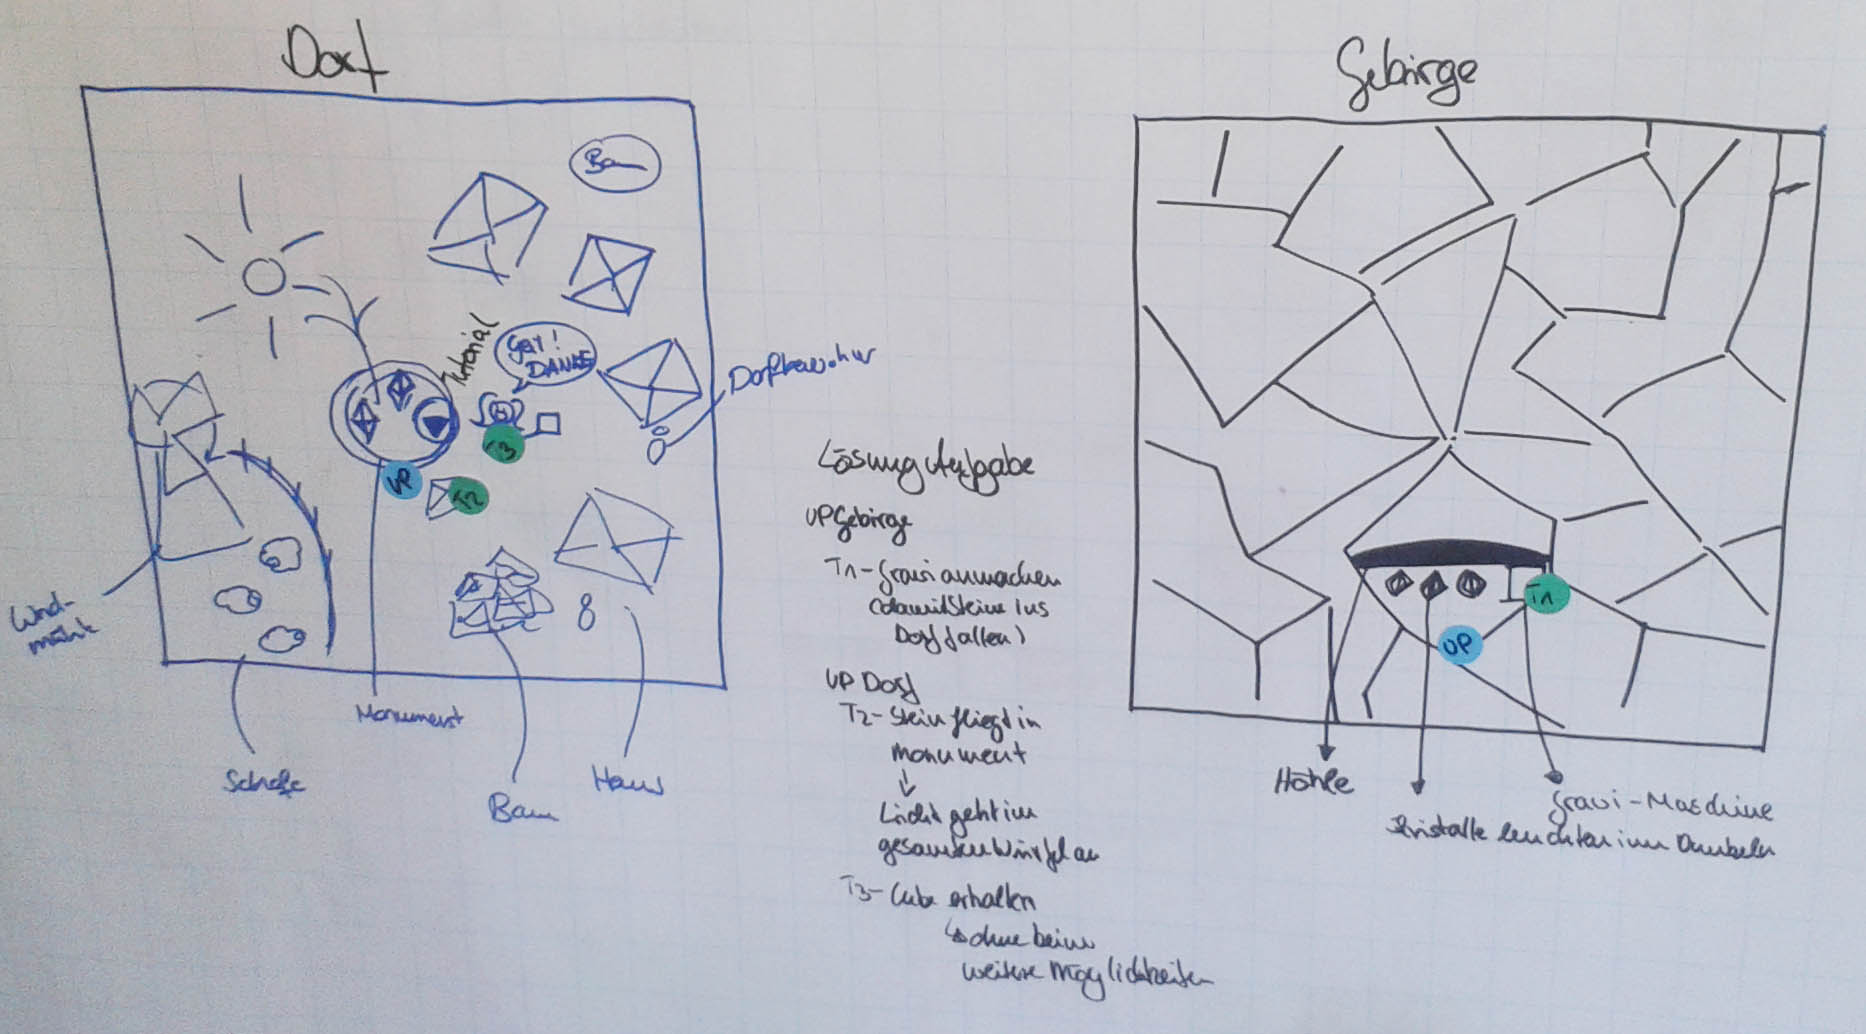 Dorf
Gebirge
Baum
Tutorial
Gut!
DANKE
Dorfbewohner
T3
VP
T2
Wind-
mühle
Monument
Schafe
Baum
Haus
Lösung Aufgabe
VP Gebirge
T1 - Gravi anmachen
(damit Steine ins
Dorf fallen)
VP Dorf
T2 - Stein fliegt in
Monument
↓
Licht geht im
gesamten Würfel an
T3 - Cube erhalten
↳ ohne keine
weitere Möglichkeiten
T1
VP
Höhle
Gravi - Maschine
Kristalle leuchten im Dunkeln